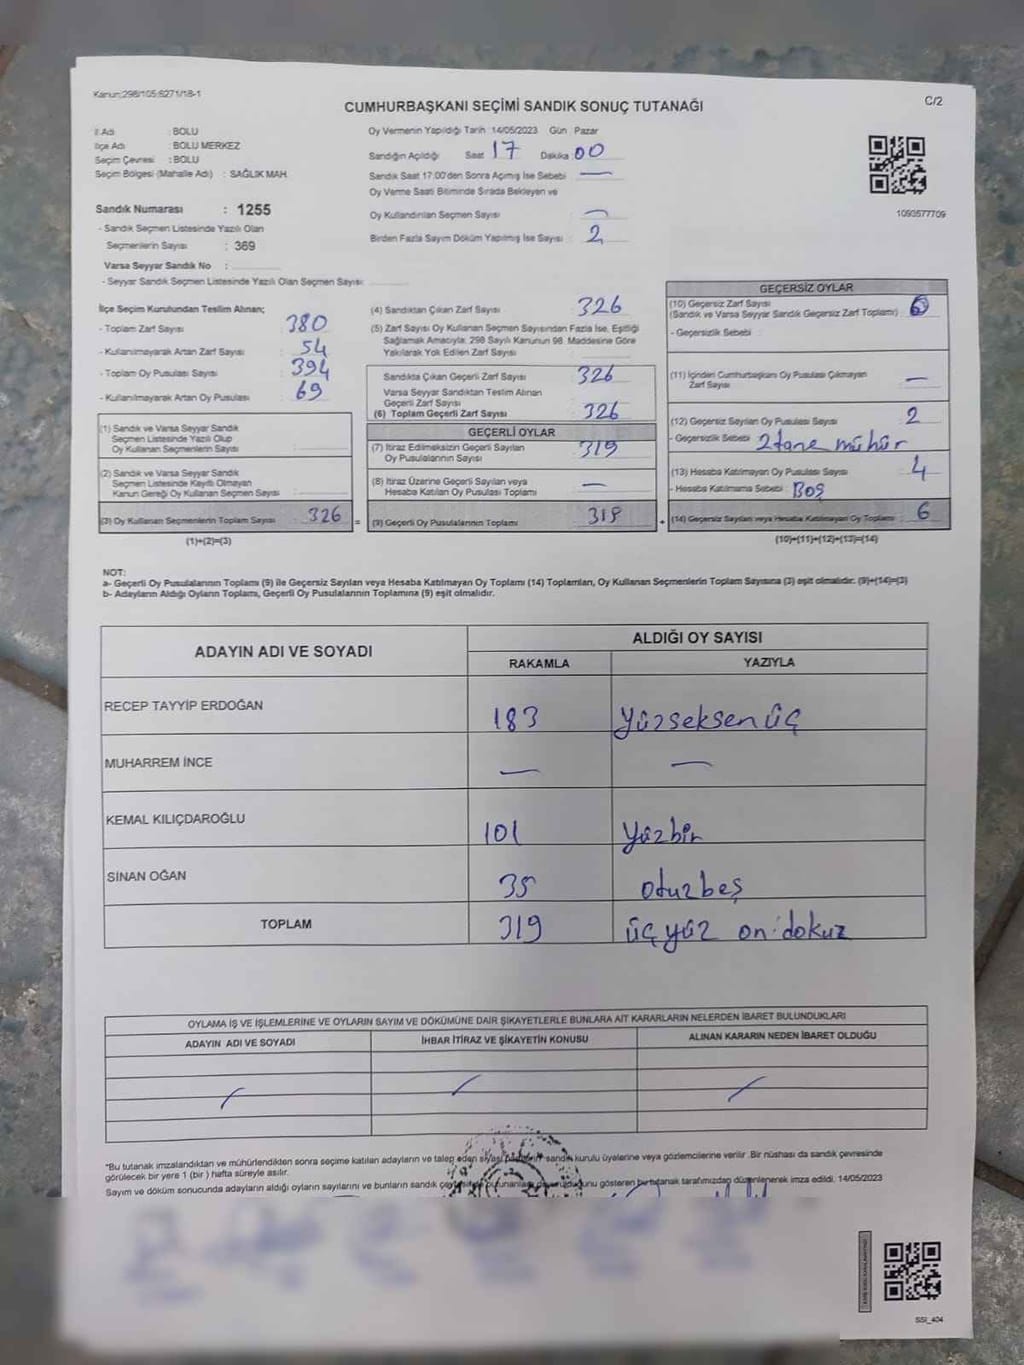 Kanun:298/105:6271/18-1
C/2
CUMHURBAŞKANI SEÇİMİ SANDIK SONUÇ TUTANAĞI
İl Adı : BOLU
İlçe Adı : BOLU MERKEZ
Seçim Çevresi : BOLU
Seçim Bölgesi (Mahalle Adı) : SAĞLIK MAH.
Sandık Numarası : 1255
- Sandık Seçmen Listesinde Yazılı Olan
Seçmenlerin Sayısı : 369
Varsa Seyyar Sandık No :
- Seyyar Sandık Seçmen Listesinde Yazılı Olan Seçmen Sayısı:
Oy Vermenin Yapıldığı Tarih :14/05/2023 Gün : Pazar
Sandığın Açıldığı Saat 17 Dakika :00
Sandık Saat 17:00'den Sonra Açımış İse Sebebi : —
Oy Verme Saati Bitiminde Sırada Bekleyen ve
Oy Kullandırılan Seçmen Sayısı : —
Birden Fazla Sayım Döküm Yapılmış İse Sayısı : 2
1093577709
İlçe Seçim Kurulundan Teslim Alınan;
- Toplam Zarf Sayısı : 380
- Kullanılmayarak Artan Zarf Sayısı : 54
- Toplam Oy Pusulası Sayısı : 394
- Kullanılmayarak Artan Oy Pusulası : 69
(1) Sandık ve Varsa Seyyar Sandık
Seçmen Listesinde Yazılı Olup
Oy Kullanan Seçmenlerin Sayısı :
(2) Sandık ve Varsa Seyyar Sandık
Seçmen Listesinde Kayıtlı Olmayan
Kanun Gereği Oy Kullanan Seçmen Sayısı :
(3) Oy Kullanan Seçmenlerin Toplam Sayısı : 326 =
(1)+(2)=(3)
(4) Sandıktan Çıkan Zarf Sayısı : 326
(5) Zarf Sayısı Oy Kullanan Seçmen Sayısından Fazla İse, Eşitliği
Sağlamak Amacıyla; 298 Sayılı Kanunun 98. Maddesine Göre
Yakılarak Yok Edilen Zarf Sayısı :
Sandıkta Çıkan Geçerli Zarf Sayısı : 326
Varsa Seyyar Sandıktan Teslim Alınan
Geçerli Zarf Sayısı :
(6) Toplam Geçerli Zarf Sayısı : 326
GEÇERLİ OYLAR
(7) İtiraz Edilmeksizin Geçerli Sayılan
Oy Pusulalarının Sayısı : 319
(8) İtiraz Üzerine Geçerli Sayılan veya
Hesaba Katılan Oy Pusulası Toplamı : —
(9) Geçerli Oy Pusulalarının Toplamı : 319 +
GEÇERSİZ OYLAR
(10) Geçersiz Zarf Sayısı
(Sandık ve Varsa Seyyar Sandık Geçersiz Zarf Toplamı) :
- Geçersizlik Sebebi :
(11) İçinden Cumhurbaşkanı Oy Pusulası Çıkmayan
Zarf Sayısı : —
(12) Geçersiz Sayılan Oy Pusulası Sayısı : 2
- Geçersizlik Sebebi : 2 tane mühür
(13) Hesaba Katılmayan Oy Pusulası Sayısı : 4
- Hesaba Katılmama Sebebi : Boş
(14) Geçersiz Sayılan veya Hesaba Katılmayan Oy Toplamı : 6
(10)+(11)+(12)+(13)=(14)
NOT:
a- Geçerli Oy Pusulalarının Toplamı (9) ile Geçersiz Sayılan veya Hesaba Katılmayan Oy Toplamı (14) Toplamları, Oy Kullanan Seçmenlerin Toplam Sayısına (3) eşit olmalıdır. (9)+(14)=(3)
b- Adayların Aldığı Oyların Toplamı, Geçerli Oy Pusulalarının Toplamına (9) eşit olmalıdır.
ADAYIN ADI VE SOYADI
ALDIĞI OY SAYISI
RAKAMLA YAZIYLA
RECEP TAYYİP ERDOĞAN 183 yüzseksen üç
MUHARREM İNCE — —
KEMAL KILIÇDAROĞLU 101 yüzbir
SİNAN OĞAN 35 otuzbeş
TOPLAM 319 üç yüz on dokuz
OYLAMA İŞ VE İŞLEMLERİNE VE OYLARIN SAYIM VE DÖKÜMÜNE DAİR ŞİKAYETLERLE BUNLARA AİT KARARLARIN NELERDEN İBARET BULUNDUKLARI
ADAYIN ADI VE SOYADI İHBAR İTİRAZ VE ŞİKAYETİN KONUSU ALINAN KARARIN NEDEN İBARET OLDUĞU
*Bu tutanak imzalandıktan ve mühürlendikten sonra seçime katılan adayların ve talep eden siyasi sandık kurulu üyelerine veya gözlemcilerine verilir .Bir nüshası da sandık çevresinde
görülecek bir yere 1 (bir ) hafta süreyle asılır.
Sayım ve döküm sonucunda adayların aldığı oyların sayılarını ve bunların sandık gösteren bu tutanak tarafımızdan düzenlenerek imza edildi. 14/05/2023
SSI_404